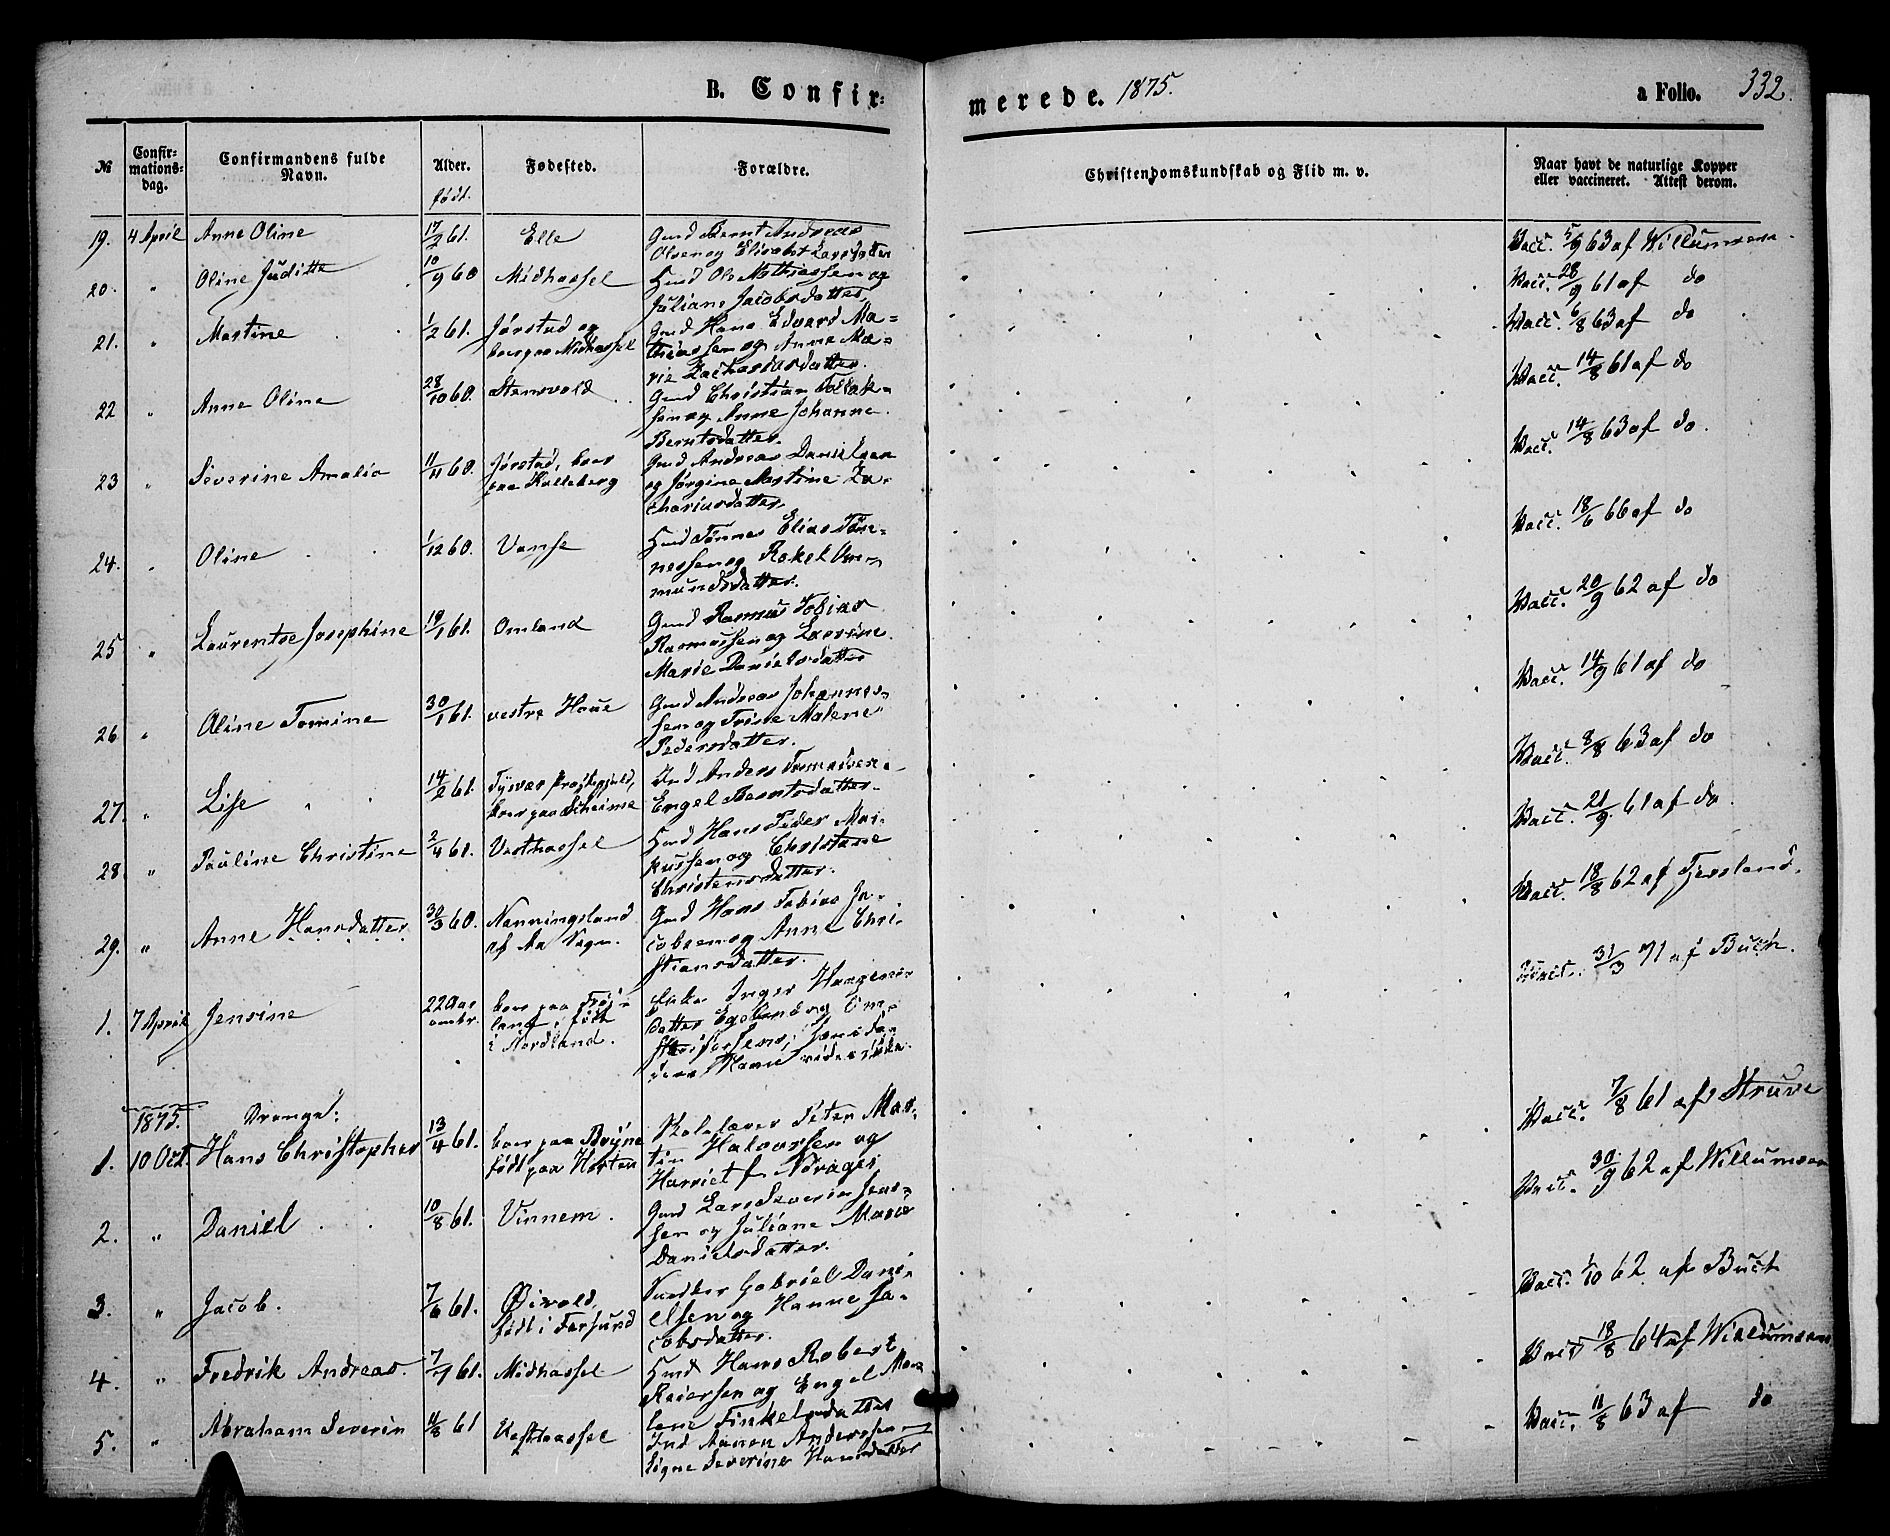 B. Confir-
merede. 1875.
a Folio. 332.
No
Confir-
mations-
dag.
Confirmandens fulde
Navn.
Alder.
født.
Fødested.
Forældre.
Christendomskundskab og Flid m. v.
Naar havt de naturlige Kopper
eller vaccineret. Attest derom.
19. 4 April Anne Oline 17/2 61. Elle Gmd Bernt Andreas
Olsen og Elisabet Larsdatter
Vacc. 5/9 63 af Willumsen
20. " Oline Juditte 10/9 60 Midhassel Hmd Ole Mathiassen og
Juliane Jacobsdatter
Vacc. 28/9 61 af do
21. " Martine 1/2 61. Jørstad og
boer paa Midhassel
Gmd Hans Edvard Ma-
thiassen og Anne Ma-
rie Zachariasdatter
Vacc. 6/8 63 af do
22 " Anne Oline 28/10 60. Stensvold Gmd Christian Tollak-
sen og Anne Johanne
Berntsdatter.
Vacc. 14/8 61 af do
23 " Severine Amalia 11/11 60. Jørstad, boer
paa Kalleberg
Gmd Andreas Danielsen
og Jørgine Martine Za-
chariasdatter.
Vacc. 14/8 63 af do.
24. " Oline 1/12 60. Vanse Hmd Tønnes Elias Tøn-
nessen og Rakel Om-
mundsdatter.
Vacc. 18/6 66 af do
25 " Laurentse Josephine 19/1 61. Omland Gmd Rasmus Tobias
Rasmussen og Lovise
Marie Danielsdatter
Vacc. 20/9 62 af do
26 " Oline Tomine 30/1 61. vestre Haue Gmd Andreas Johannes-
sen og Trine Malene
Pedersdatter.
Vacc. 14/9 61 af do
27. " Lise 14/2 61. Tysvær Præstegjeld,
boer paa Scheime
Ind Anders Tomassen
Engel Berntsdatter.
Vacc. 8/8 63 af do
28 " Pauline Christine 2/4 61. Vesthassel Hmd Hans Peder Mar-
kussen og Christiane
Christensdatter.
Vacc. 21/9 61 af do.
29. " Anne Hansdatter 30/3 60. Nanningsland
af Aa Sogn.
Gmd Hans Tobias Ja-
cobsen og Anne Chri-
stiansdatter.
Vacc. 18/8 62 af Tjersland.
1. 7 April Jensine 22 Aar
ombr.
boer paa
land, født
i Nordland.
Inger
datter Egeland og
Vacc. 31/3 71 af Buch.
1875. Drenge:
1. 10 Oct. Hans Christopher 13/4 61. boer paa Bryne
født paa Horten
Skolelærer Peter Mar-
tin Halvorsen og
Harriet f. Norager
Vacc. 7/8 61 af Struve
2. " Daniel 10/8 61. Vinnem. Gmd Lars Severin Jens-
sen og Juliane Marie
Danielsdatter.
Vacc. 30/9 62 af Willumsen
3. " Jacob. 7/6 61. Øivold,
født i Farsund
Snedker Gabriel Dani-
elsen og Hanne Ja-
cobsdatter.
Vacc. 1/10 62. af Buch
4. " Fredrik Andreas. 7/9 61. Midhassel Hmd Hans Robert
Reiersen og Engel Ma-
lene Tinkelsdatter
Vacc 18/8 64 af Willumsen
5. " Abraham Severin 11/8 61 Vesthassel Ind Aanen Andersen
Signe Severine Hansdatter
Vacc. 11/8 63 af do